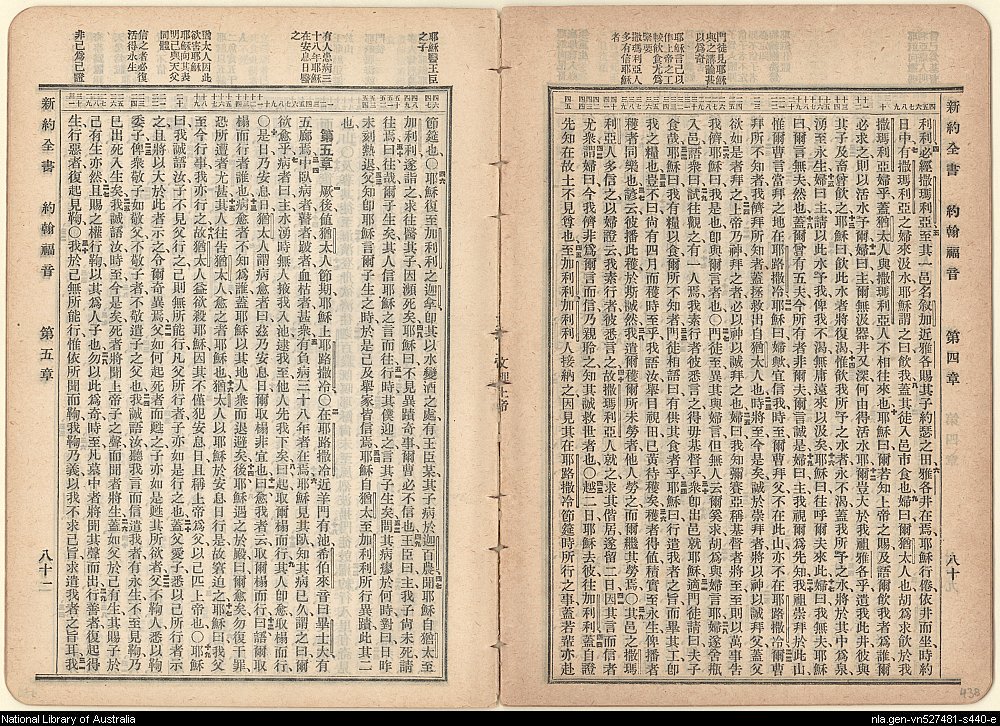 新約全書 約翰福音 第四章
利利必經撒瑪利亞至其一邑名叙加近雅各賜其子約瑟之田雅各井在焉耶穌行倦依井而坐時約
日中有撒瑪利亞之婦來汲水耶穌謂之曰飲我蓋其徒入邑市食也婦曰爾猶太人也胡為求飲於我
撒瑪利亞婦乎蓋猶太人與撒瑪利亞人不相往來也耶穌曰爾若知上帝之賜及語爾飲我者為誰爾
必求之則以活水予爾婦曰主爾無汲器井又深何由得活水耶爾豈大於我祖雅各乎遺我此井彼與
其子及畜曾飲之耶穌曰飲此水者將復渴惟飲我所予之水者永不渴蓋我所予之水將於其中為泉
湧至永生婦曰主請以此水予我俾我不渴無庸遠來以汲矣耶穌曰往呼爾夫來此婦曰我無夫耶穌
曰爾言無夫然也蓋爾曾有五夫今所有者非爾夫爾言誠是婦曰主我視爾為先知我祖崇拜於此山
惟爾曹言當拜之地在耶路撒冷耶穌曰婦歟宜信我時至爾曹拜父不在此山亦不在耶路撒冷爾曹
拜所不知者我儕拜所知者蓋拯救出自猶太人也時將至今是矣誠於崇拜者將以神以誠拜父蓋父
欲如是者拜之上帝乃神拜之者必以神以誠拜之也婦曰我知彌賽亞稱基督者將至至則以萬事告
我儕耶穌曰我是也即與爾言者也○門徒至異其與婦言但無人云爾奚求胡為與婦言耶婦遂舍瓶
入邑語衆曰試往觀之有一人焉我素行者彼悉言之得毋基督乎衆即出邑就耶穌適門徒請曰夫子
食哉耶穌曰我有糧以食爾所不知者門徒相語曰有供其食者乎耶穌曰行遣我者之旨而畢其工即
我之糧也豈不曰尚有四月而穫時至乎我語汝舉目視田已黃待穫矣穫者得值積實至永生俾播者
穫者同樂也諺云彼播此穫於斯誠然我遣爾穫爾所未勞者他人勞之而爾繼其勞焉○其邑之撒瑪
利亞人多信之以婦證云我素行者彼悉言之故撒瑪利亞人就之求其偕居遂留二日因其言而信者
尤衆語婦曰今我儕非為爾言而信乃親聆之知其誠救世者也○越二日耶穌去彼往加利利蓋自證
先知在故土不見尊也至加利利加利利人接納之因見其在耶路撒冷節筵時所行之事蓋若輩亦赴
門徒見耶穌
與婦之講論甚
以為奇
耶穌言己以
作上帝之工
較飲食尤為
緊要
撒瑪利亞人
多有信耶穌
者
耶穌醫王臣
之子
節筵也○耶穌復至加利利之迦拿即其以水變酒之處有王臣某其子病於迦百農聞耶穌自猶太至
加利利遂詣之求往醫其子因瀕死矣耶穌曰不見異蹟奇事爾曹必不信也王臣曰主我子尚未死請
往焉曰往哉爾子生矣其人信耶穌之言而往行時其僕迎之言其子生矣問其病瘳於何時對曰日昨
未刻熱退父知即耶穌言爾子生之時於是己及舉家皆信焉耶穌自猶太至加利利所行異蹟此其二
也
第五章 厥後值猶太人節期耶穌上耶路撒冷○在耶路撒冷近羊門有池希伯來音曰畢士大有
五廊焉中臥病者瞽者跛者血枯者甚衆有負病三十八年者在焉耶穌見其臥知其病已久謂之曰爾
欲愈乎病者曰主水湧時無人掖我入池逮我至他人先我下矣曰起取爾榻而行其人即愈取榻而行
○是日乃安息日猶太人謂病愈者曰茲乃安息日爾取榻非宜也曰愈我者云取爾榻而行曰語爾取
榻而行者誰也病愈者不知為誰蓋耶穌以其地人衆而退避矣後耶穌遇之於殿曰爾愈矣勿復干罪
恐所遭者尤甚其人往告猶太人愈之者耶穌也猶太人以耶穌於安息日行是故窘迫之耶穌曰我父
至今行事我亦行之故猶太人益欲殺耶穌因其不僅犯安息日且稱上帝為父以己匹上帝也○耶穌
曰我誠語汝子不見父行之己則無所能行凡父所行者子亦如是行之也蓋父愛子悉以己所行者示
之且將以大於此者示之令爾奇異焉父如何起死者而甦之子亦如是甦其所欲者父不鞫人悉以鞫
委子俾衆敬子如敬父不敬子者不敬遣子之父也我誠語汝聽我言而信遣我者有永生不至鞫乃
已出死入生矣我誠語汝時至今是矣死者將聞上帝子之聲而聞者將生蓋父如於己有生其賜子於
己有生亦然且賜之權行鞫以其為人子也勿以此為奇時至凡墓中者將聞其聲而出行善者復起得
生行惡者復起見鞫○我於己無所能行惟依所聞而鞫我鞫乃義以我不求己旨求遣我者之旨耳我
有人患病三
十八年耶穌
在安息日醫
之
猶太人因此
欲害耶穌
耶穌向其表
明己與天父
同體
信之者必復
活得永生
非己為己證
新約全書 約翰福音 第五章
National Library of Australia
nla.gen-vn527481-s440-e